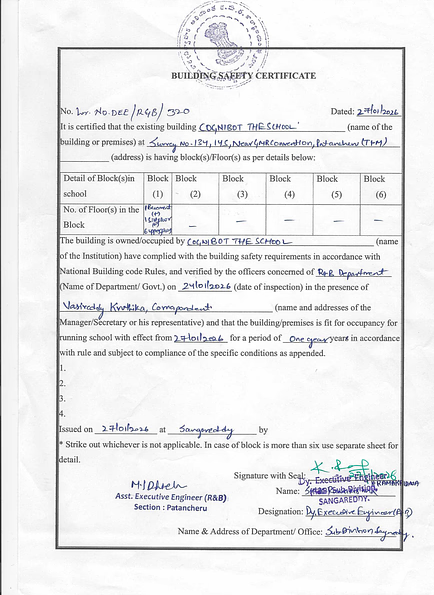 BUILDING SAFETY CERTIFICATE
No. Lr. No. DEE/R&B/520 Dated: 27/01/2026
It is certified that the existing building COGNIBOT THE SCHOOL (name of the
building or premises) at Survey No. 134, 145, Near GMR Convention, Patancheru (T+M)
(address) is having block(s)/Floor(s) as per details below:
Detail of Block(s)in school Block (1) Block (2) Block (3) Block (4) Block (5) Block (6)
No. of Floor(s) in the Block — — — — —
The building is owned/occupied by COGNIBOT THE SCHOOL (name
of the Institution) have complied with the building safety requirements in accordance with
National Building code Rules, and verified by the officers concerned of R&B Department
(Name of Department/ Govt.) on 24/01/2026 (date of inspection) in the presence of
Vasireddy (name and addresses of the
Manager/Secretary or his representative) and that the building/premises is fit for occupancy for
running school with effect from 27/01/2026 for a period of One year years in accordance
with rule and subject to compliance of the specific conditions as appended.
1.
2.
3.
4.
Issued on 27/01/2026 at Sangareddy by
* Strike out whichever is not applicable. In case of block is more than six use separate sheet for
detail.
Signature with Seal:
Dy. Executive Engineer
Name:
SANGAREDDY.
Asst. Executive Engineer (R&B)
Section : Patancheru
Designation: Dy. Executive Engineer (R&B)
Name & Address of Department/ Office: Sub Division